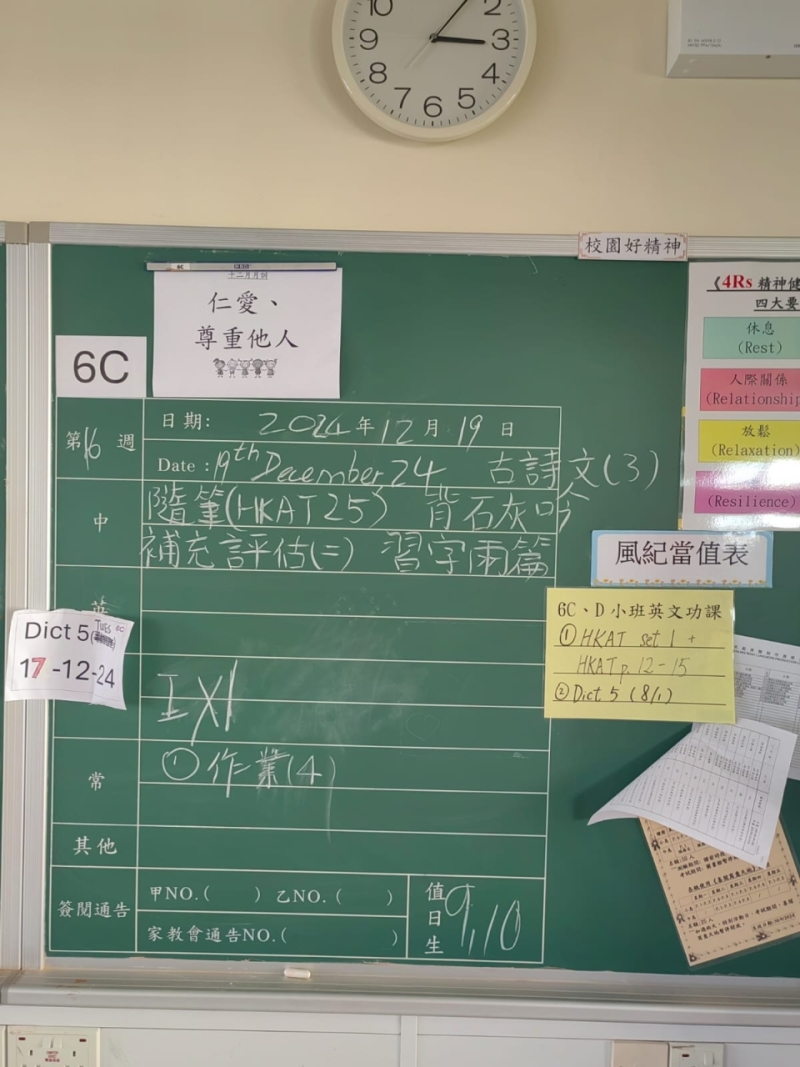 10
2
9
3
8
4
7
6
5
校園好精神
十二月月訓
仁愛、
尊重他人
6C
《4Rs 精神健
四大要
休息
(Rest)
人際關係
(Relationship
放鬆
(Relaxation)
(Resilience)
第16週
日期: 2024年12月19日
Date : 19th December 24 古詩文(3)
中
隨筆(HKAT 25) 背石灰吟
補充評估(二) 習字兩篇
英
Dict 5 (TUES 6C
17-12-24
工×1
常
① 作業(4)
其他
簽閱通告
甲NO.( ) 乙NO.( )
家教會通告NO.( )
值日生
9,10
風紀當值表
6C、D 小班英文功課
① HKAT set 1 +
HKAT p.12-15
② Dict 5 (8/1)